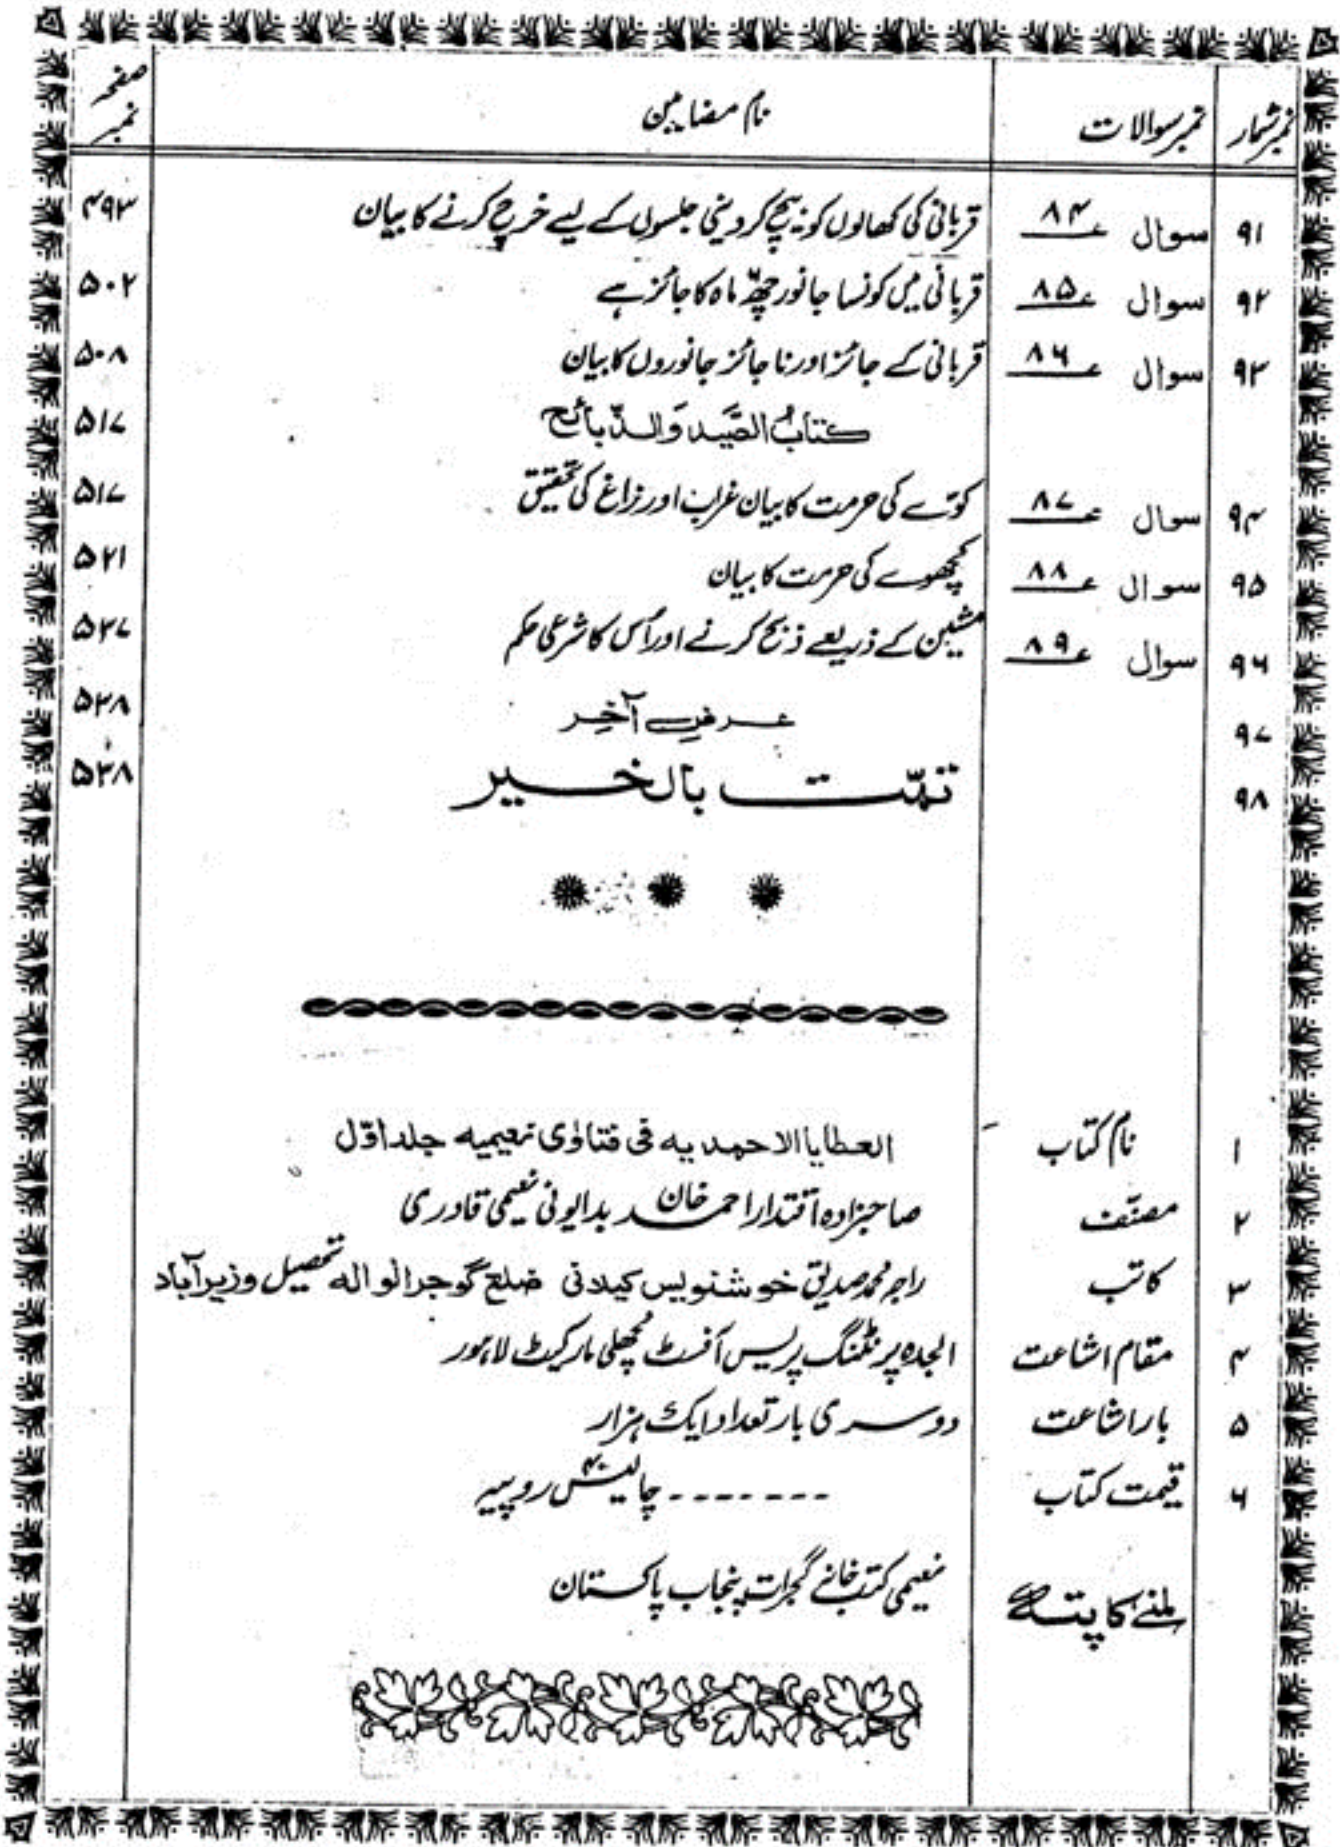 نمبر شمار نمبر سوالات نام مضامین صفحہ نمبر
۹۱ سوال ۸۴ قربانی کی کھالوں کو بیچ کر دینی جلسوں کے لیے خرچ کرنے کا بیان ۴۹۳
۹۲ سوال ۸۵ قربانی میں کونسا جانور چھ ماہ کا جائز ہے ۵۰۲
۹۳ سوال ۸۶ قربانی کے جائز اور ناجائز جانوروں کا بیان ۵۰۸
کتابُ الصَّید وَالذّبائح ۵۱۷
۹۴ سوال ۸۷ کوّے کی حرمت کا بیان غراب اور زاغ کی تحقیق ۵۱۷
۹۵ سوال ۸۸ کچھوے کی حرمت کا بیان ۵۲۱
۹۶ سوال ۸۹ مشین کے ذریعے ذبح کرنے اور اُس کا شرعی حکم ۵۲۷
۹۷ عرضِ آخِر ۵۲۸
۹۸ تمّت بالخیر ۵۲۸
۱ نام کتاب العطایا الاحمدیہ فی فتاوٰی نعیمیہ جلد اوّل
۲ مصنّف صاحبزادہ اقتدار احمد خان بدایونی نعیمی قادری
۳ کاتب راجہ محمد صدیق خوشنویس کیلانی ضلع گوجرالوالہ تحصیل وزیرآباد
۴ مقام اشاعت الجدہ پرنٹنگ پریس آفسٹ مچھلی مارکیٹ لاہور
۵ بار اشاعت دوسری بار تعداد ایک ہزار
۶ قیمت کتاب ------- چالیس ۴۰ روپیہ
ملنے کا پتہ نعیمی کتب خانے گجرات پنجاب پاکستان